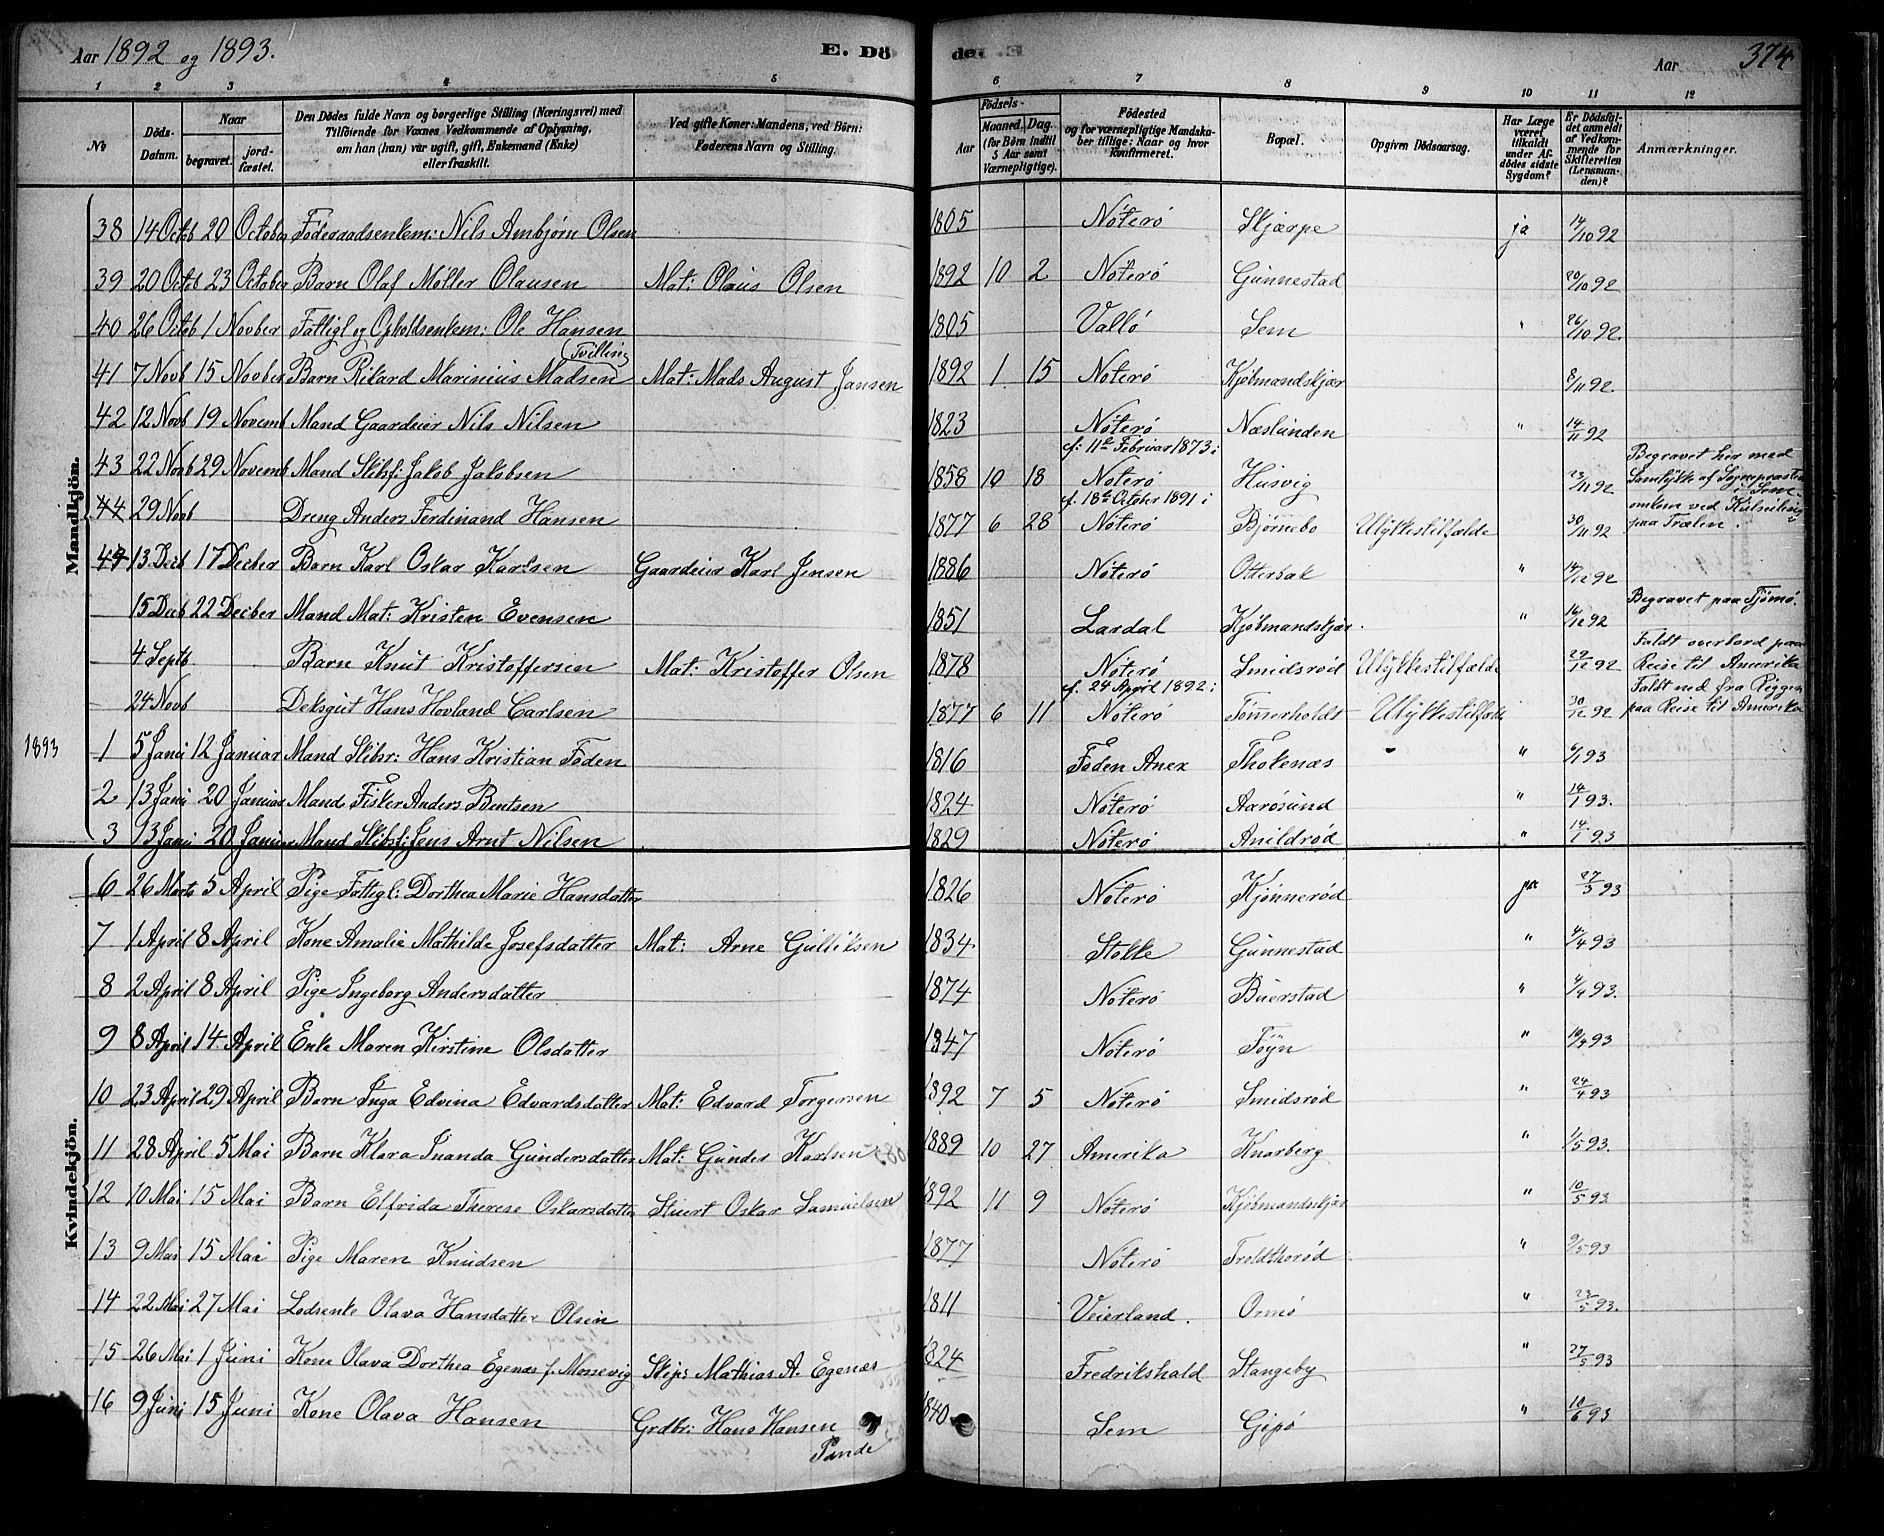 Aar 1892 og 1893. E. Dö de. Aar 374
1 2 3 4 5 6 7 8 9 10 11 12
No Döds-Datum. Naar begravet. jordfæstet. Den Dödes fulde Navn og borgerlige Stilling (Næringsvei) med Tilföiende for Voxnes Vedkommende af Oplysning, om han (hun) var ugift, gift, Enkemand (Enke) eller fraskilt. Ved gifte Koner: Mandens, ved Börn: Faderens Navn og Stilling. Födsels- Aar Maaned. Dag. (for Börn indtil 5 Aar samt Værnepligtige). Födested og for værnepligtige Mandskaber tillige: Naar og hvor konfirmeret. Bopæl. Opgiven Dödsaarsag. Har Læge været tilkaldt under Afdödes sidste Sygdom? Er Dödsfaldet anmeldt af Vedkommende for Skifteretten (Lensmanden)? Anmærkninger.
Mandkjön.
38 14 Octb 20 October Föderaadsenkem: Nils Ambjörn Olsen 1805 Nöterö Skjærpe ja 14/10 92
39 20 Octb 23 October Barn Olaf Möller Olausen Mat: Olaus Olsen 1892 10 2 Nöterö Gunnestad 20/10 92
40 26 Octb 1 Novber Fattigl og Opholdsenkem: Ole Hansen 1805 Vallö Sem " 26/10 92.
41 7 Novb 15 Novber Barn Rikard Marinius Madsen (Tvilling) Mat: Mads August Jansen 1892 1 15 Nöterö Kjöbmandskjær 8/11 92
42 12 Novb 19 Novemb Mand Gaardeier Nils Nilsen 1823 Nöterö Næslunden " 14/11 92
43 22 Novb 29 Novemb Mand Skibsf: Jakob Jakobsen 1858 10 18 c: 11te Februar 1873 i Nöterö Husvig 23/11 92 Begravet her med Samtykke af Sognepræsten i Sem
44 29 Novb Dreng Anders Ferdinand Hansen 1877 6 28 c: 18de October 1891 i Nöterö Bjørnebo Ulykkestilfælde 30/11 92 omkom ved Kulseiling paa Træla.
44 13 Decb 17 Decber Barn Karl Oskar Karlsen Gaardeier Karl Jensen 1886 Nöterö Otterbæk " 14/12 92
15 Decb 22 Decber Mand Mat: Kristen Evensen 1851 Lardal Kjöbmandskjær. " 16/12 92 Begravet paa Tjömö.
4 Septb. Barn Knut Kristoffersen Mat: Kristoffer Olsen 1878 Nöterö Smidsrød Ulykkestilfælde 29/12 92 Faldt overbord paa Reise til Amerika
24 Novb Deksgut Hans Hovland Carlsen 1877 6 11 c. 24 April 1892 i Nöterö Tömmerholdt Ulykkestilfælde 30/12 92 Faldt ned fra Riggen paa Reise til Amerika
1893 1 5 Janu 12 Januar Mand Skibsr: Hans Kristian Føden 1816 Føden Anex Tholenæs " 6/1 93
2 13 Janu 20 Januar Mand Fisker Anders Bentsen 1824 Nöterö Aarösund " 14/1 93.
3 13 Janu 20 Januar Mand Skibsf: Jens Arnt Nilsen 1829 Nöterö Anildrød " 14/1 93
Kvindekjön.
6 26 Marts 5 April Pige Fattigl: Dorthea Marie Hansdatter 1826 Nöterö Kjønnerød ja 27/3 93
7 1 April 8 April Kone Amalie Mathilde Josefsdatter Mat: Arne Gulliksen 1834 Stokke Gunnestad " 4/4 93
8 2 April 8 April Pige Ingeborg Andersdatter 1874 Nöterö Buerstad " 4/4 93.
9 8 April 14. April Enke Maren Kirstine Olsdatter 1847 Nöterö Föyn " 10/4 93
10 23 April 29 April Barn Inga Edvina Edvardsdatter Mat: Edvard Torgersen 1892 7 5 Nöterö Smidsrød " 24/4 93
11 28 April 5 Mai Barn Klara Inanda Gundersdatter Mat: Gunder Karlsen 1889 10 27 Amerika Knarberg " 1/5 93.
12 10 Mai 15 Mai Barn Elfrida Therese Oskarsdatter Stuert Oskar Samuelsen 1892 11 9 Nöterö Kjöbmandskjær " 10/5 93.
13 9 Mai 15 Mai Pige Maren Knudsen 1877 Nöterö Troldthorød " 9/5 93
14 22 Mai 27 Mai Lodsenke Olava Hansdatter Olsen 1811 Veierland. Ormö " 23/5 93.
15 26 Mai 1 Juni Kone Olava Dorthea Egenæs f. Mossevig Skips Mathias A. Egenæs 1824 Fredrikshald Stangeby " 27/5 93
16 9 Juni 15 Juni Kone Olava Hansen Grdbr: Hans Hansen Pande 1840 Sem Gipö " 10/6 93